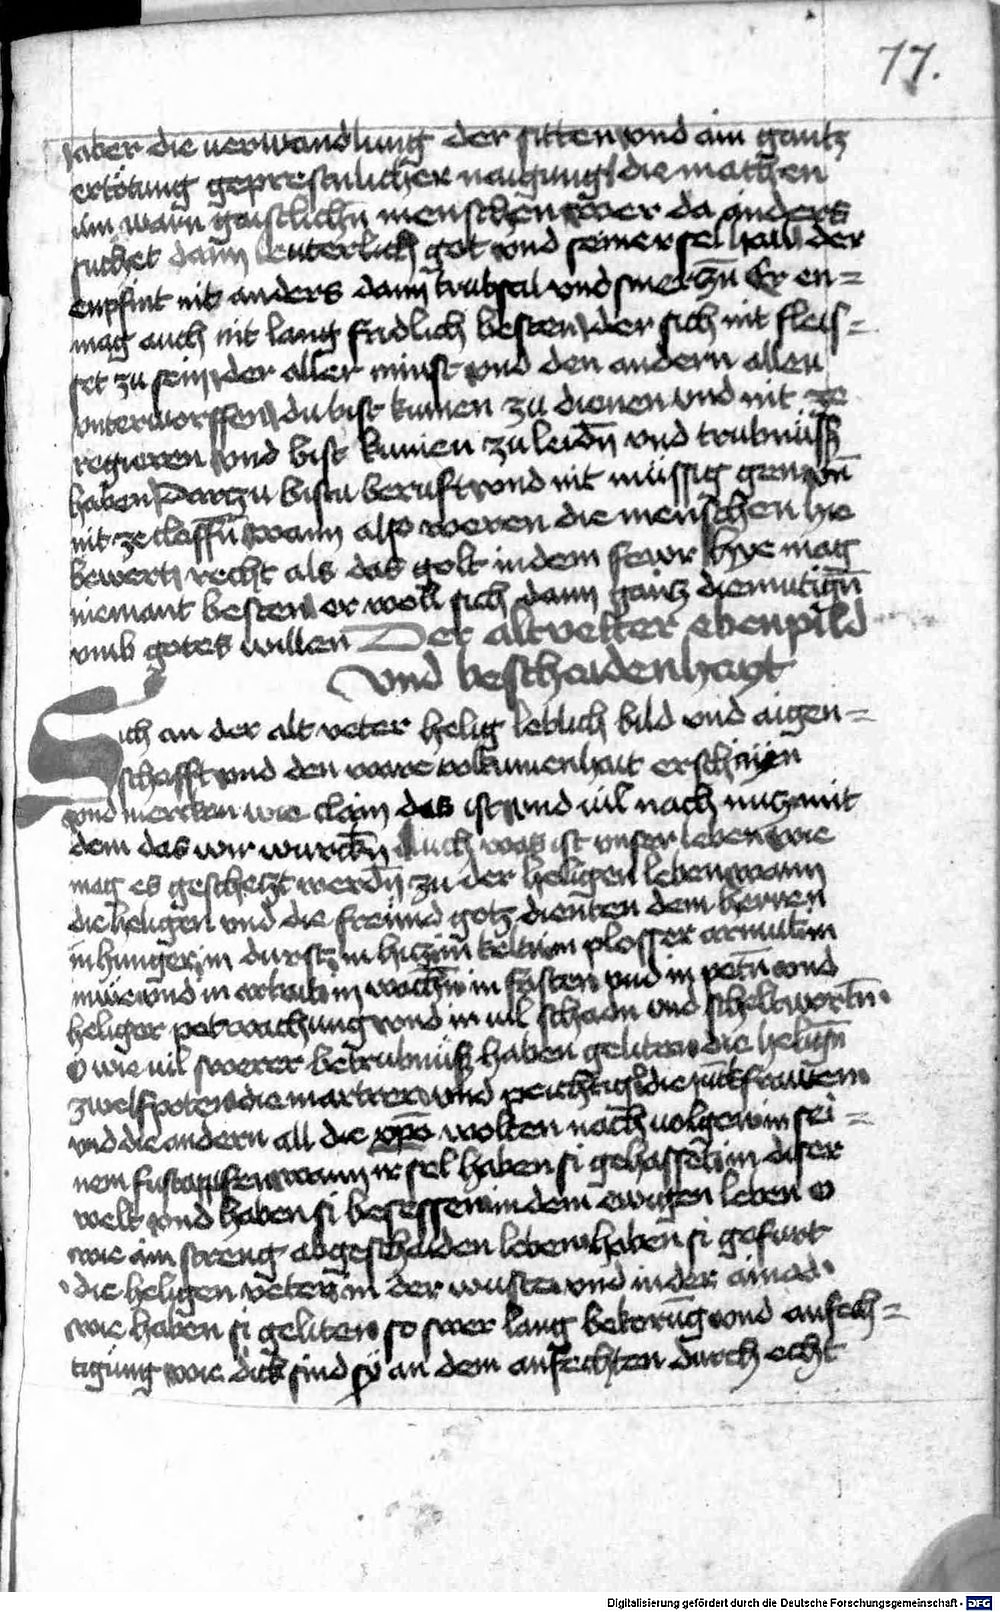 77.
aber die uerwandlung der sitten und ain gantz
ertötung geprestulicher naigung die machen
ain warn gaistlichn menschen wer da anders
suchet dann leuterlich got und seiner sel hail der
enpfint nit anders dann trubsal und smerczn Er en=
mag auch nit lang fridlich besten der sich nit fleis=
set zu sein der aller minst und den andern allen
unterworffen du bist kumen zu dienen und nit ze
regieren und bist kumen zu leidn und trubnüss
haben Darczu bistu beruft und nit müssig gen un
nit ze claffn wann also weren die menschen hie
bewert recht als das golt in dem fewr hye mag
niemant besten er woll sich dann gantz diemutign
umb gotes willen Der altvetter ebenpild
und beschaidenhayt
Sich an der alt veter helig leblich bild und aigen=
schafft und den ware volkumenhait erschinen
und mercken wie clain das ist und uil nach nichz mit
dem das wir wurckn Auch was ist unser leben wie
mag es geschetzt werdn zu der heligen leben wann
die heligen und die freund gotz dienten dem herren
in hunger in durst in hicz in kelten in plosser armut in
müe und in arbait in wachn in fasten und in petn und
heliger petrachtung und in uil schadn und scheltwortn
O wie uil swerer betrubnüß haben geliten die helign
zwelfpoten die martrer und peichtiger die junckfrauen
und die andern all die xpo wolten nach uolgen in sei=
nem fustapfen wann ir sel haben si gehasset in diser
welt und haben si besessen in dem ewigen leben O
wie ain streng abgeschaiden leben haben si gefurt
die heligen veter in der wuste und in der ainod
wie haben si geliten so swer lang bekorūg und anfech=
tigung wie dick sind sy an dem anfechten durch echt
Digitalisierung gefördert durch die Deutsche Forschungsgemeinschaft - DFG